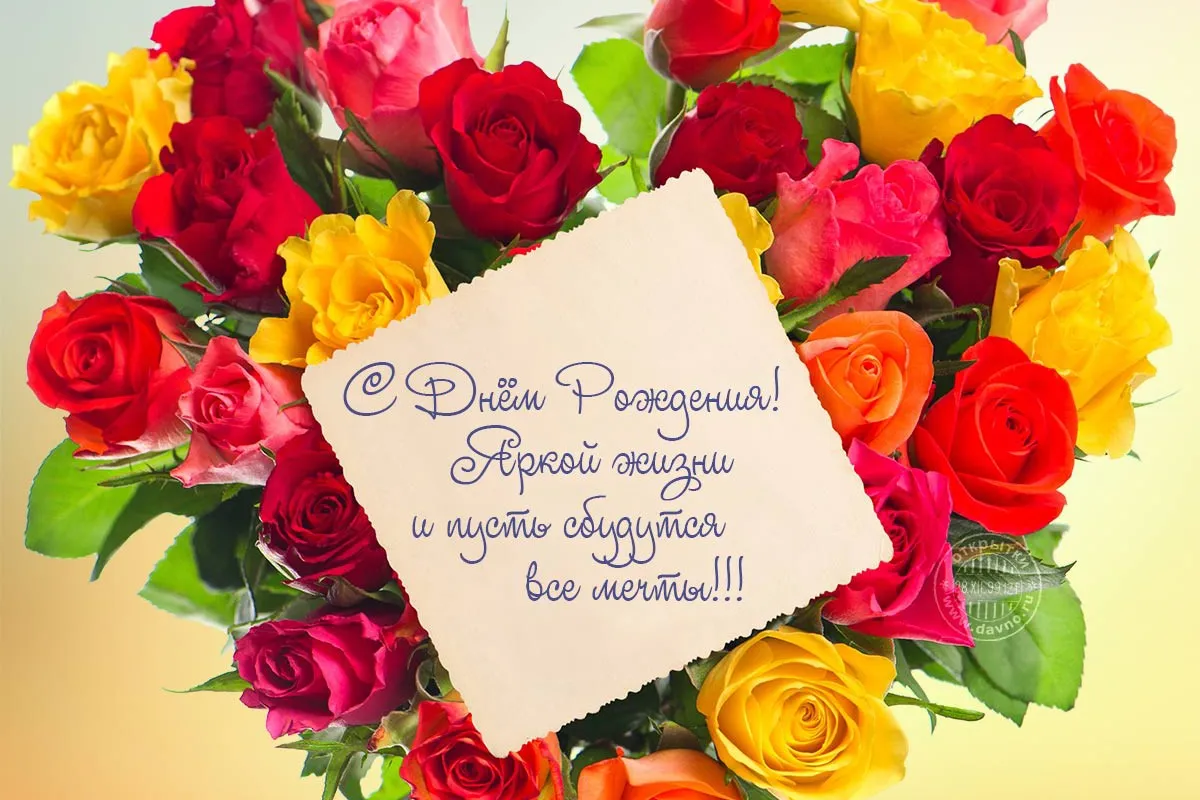 С Днём Рождения!
Яркой жизни
и пусть сбудутся
все мечты!!!
открытки
www.davno.ru